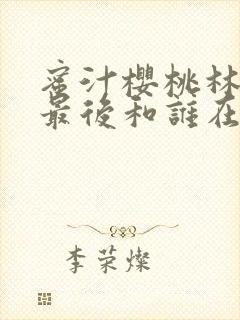 蜜汁樱桃林
最後和誰在
李荣燦